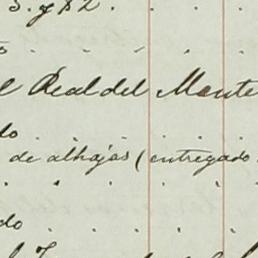 3. y 82.
l Real del Monte
do
de alhajas (entregado
do